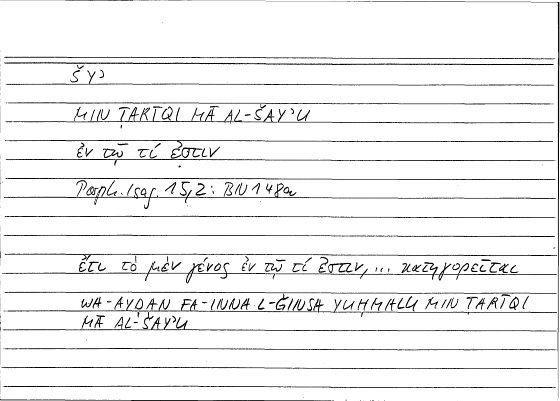 Šyʾ
MIN ṬARĪQI MĀ AL-ŠAYʾU
ἐν τῷ τί ἐστιν
Porph. Isag. 15,2: BN 148a
ἔτι τὸ μὲν γένος ἐν τῷ τί ἐστιν, ... κατηγορεῖται
WA-AYḌAN FA-INNA L-ǦINSA YUḤMALU MIN ṬARĪQI
MĀ AL-ŠAYʾU